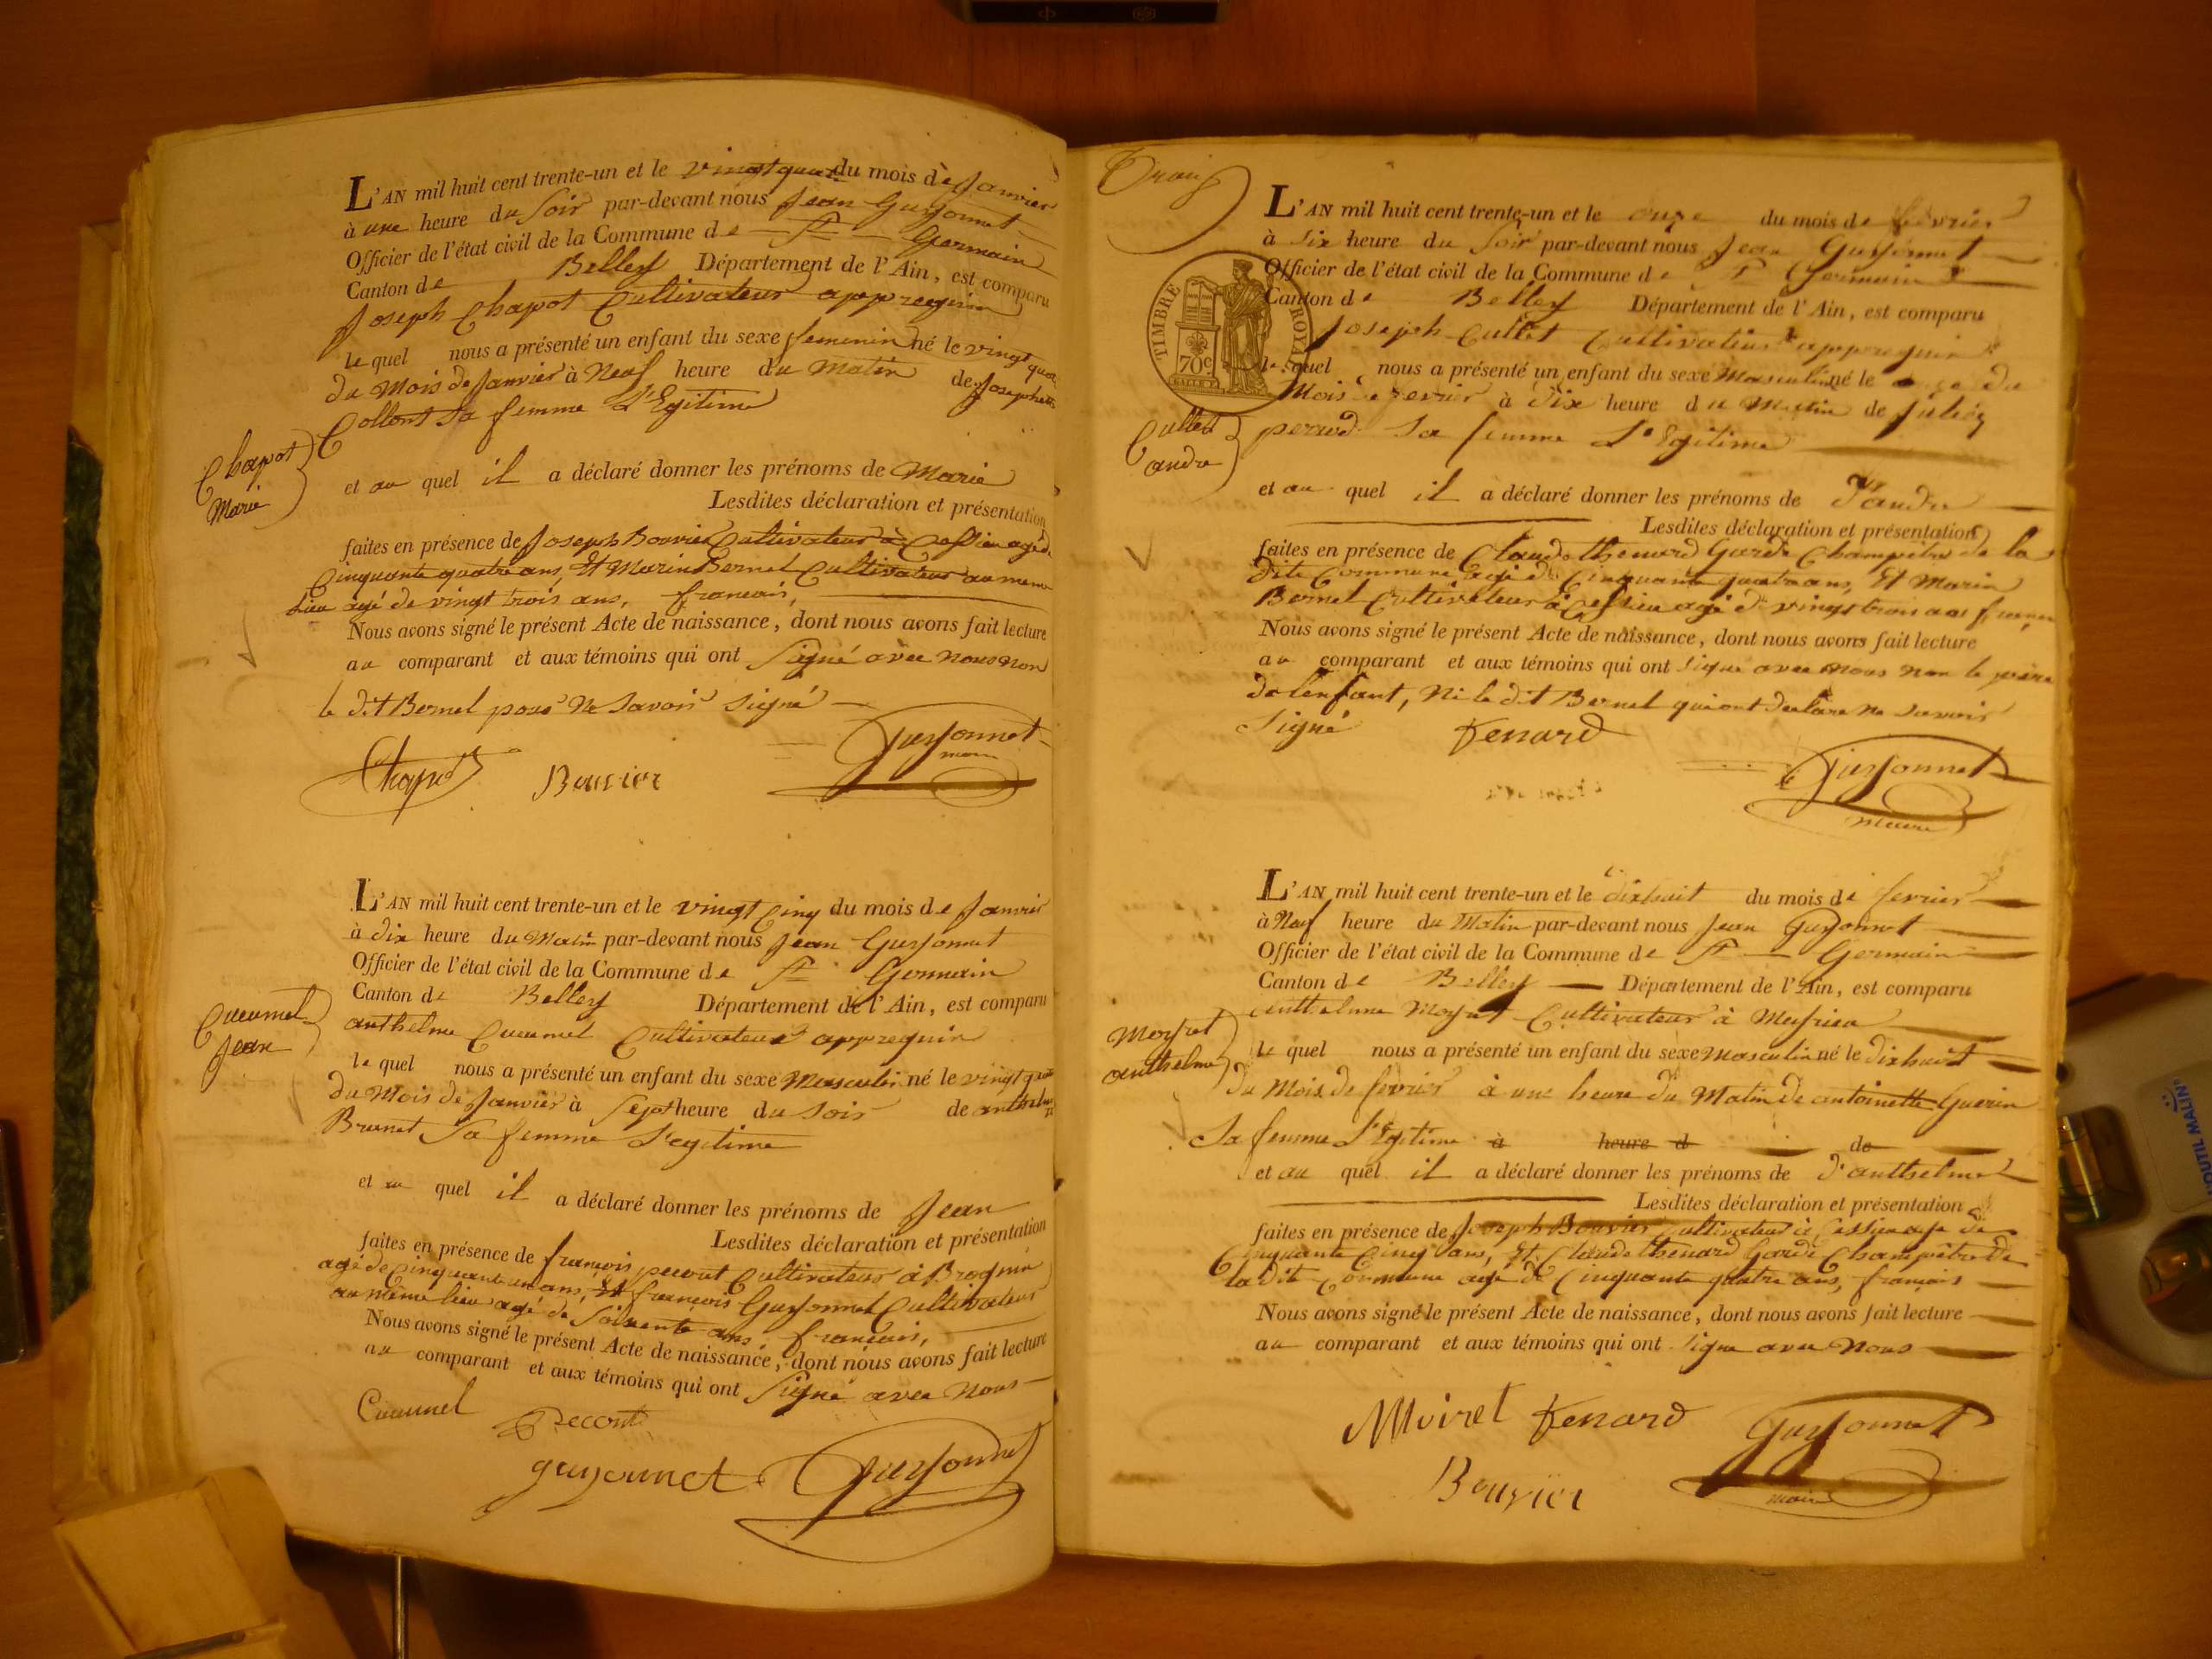 L'AN mil huit cent trente-un et le vingt quatre du mois de Janvier
à une heure du Soir par-devant nous Jean Guyonnet
Officier de l'état civil de la Commune de St Germain
Canton de Belley Département de l'Ain, est comparu
Joseph Chapot Cultivateur
le quel nous a présenté un enfant du sexe femenin né le vingt quatre
du Mois de Janvier à Neuf heure du Matin de Josephette
Collont Sa femme L'Egitime
Chapot
Marie
et au quel il a déclaré donner les prénoms de Marie
Lesdites déclaration et présentation
faites en présence de Joseph Bouvier Cultivateur à Cessieu agé de
Cinquante quatre ans, Et Marin Bernel Cultivateur au meme
lieu agé de vingt trois ans, francais,
Nous avons signé le présent Acte de naissance, dont nous avons fait lecture
au comparant et aux témoins qui ont Signé avec nous non
le dit Bernel pour Ne Savoir Signé
Chapot Bouvier Guyonnet
L'AN mil huit cent trente-un et le vingt Cinq du mois de Janvier
à dix heure du Matin par-devant nous Jean Guyonnet
Officier de l'état civil de la Commune de St Germain
Canton de Belley Département de l'Ain, est comparu
anthelme Cueumel Cultivateur
Cueumel
Jean
le quel nous a présenté un enfant du sexe Masculin né le vingt quatre
du Mois de Janvier à Sept heure du Soir de anthelme
Brunet Sa femme L'egitime
et au quel il a déclaré donner les prénoms de Jean
Lesdites déclaration et présentation
faites en présence de francois pecout Cultivateur à Brognin
agé de Cinquante un ans, Et francois Guyonnet Cultivateur
au même lieu agé de Soixante ans, francais,
Nous avons signé le présent Acte de naissance, dont nous avons fait lecture
au comparant et aux témoins qui ont Signé avec Nous
Cueumel Pecout
guyonnet Guyonnet
L'AN mil huit cent trente-un et le onze du mois de fevrier
à Six heure du Soir par-devant nous Jean Guyonnet
Officier de l'état civil de la Commune de St Germain
Canton de Belley Département de l'Ain, est comparu
Joseph Cullet Cultivateur
TIMBRE ROYAL
70c
le quel nous a présenté un enfant du sexe Masculin né le onze du
Mois de fevrier à Dix heure du Matin de
Sa femme L'Egitime
Cullet
andre
et au quel il a déclaré donner les prénoms de D'andre
Lesdites déclaration et présentation
faites en présence de Claude thenard Garde Champêtre de la
dite Commune agé de Cinquante quatre ans, Et Marin
Bernel Cultivateur à Cessieu agé de vingt trois ans
Nous avons signé le présent Acte de naissance, dont nous avons fait lecture
au comparant et aux témoins qui ont signé avec Nous non le père
de l'enfant, Ni le dit Bernel qui ont declare ne Savoir
Signé fenard
Guyonnet
maire
L'AN mil huit cent trente-un et le dixhuit du mois de fevrier
à Neuf heure du Matin par-devant nous Jean Guyonnet
Officier de l'état civil de la Commune de St Germain
Canton de Belley Département de l'Ain, est comparu
anthelme Moyret Cultivateur à
Moyret
anthelme
le quel nous a présenté un enfant du sexe Masculin né le dixhuit
du Mois de fevrier à une heure du Matin de antoinette Guerin
Sa femme L'Egitime à heure d de
et au quel il a déclaré donner les prénoms de D'anthelme
Lesdites déclaration et présentation
faites en présence de Joseph Bouvier Cultivateur à Cessieu age de
Cinquante Cinq ans, Et Claude thenard Garde Champêtre de
la Dite Commune agé de Cinquante quatre ans, francais
Nous avons signé le présent Acte de naissance, dont nous avons fait lecture
au comparant et aux témoins qui ont Signé avec Nous
Moiret fenard Guyonnet
Bouvier maire
OUTIL MALIN